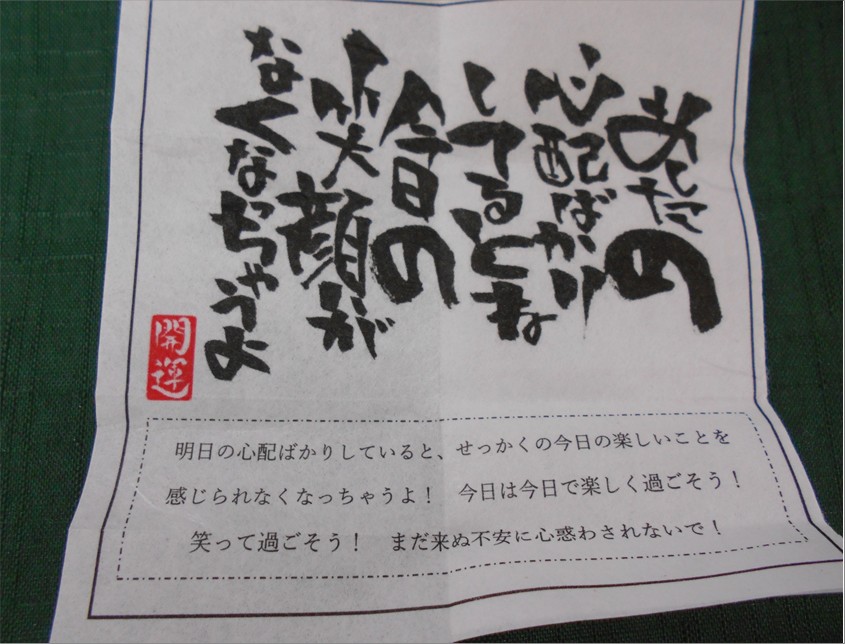 あしたの
心配ばかり
してるとね
今日の
笑顔が
なくなっちゃうよ
開運
明日の心配ばかりしていると、せっかくの今日の楽しいことを
感じられなくなっちゃうよ！　今日は今日で楽しく過ごそう！
笑って過ごそう！　まだ来ぬ不安に心惑わされないで！